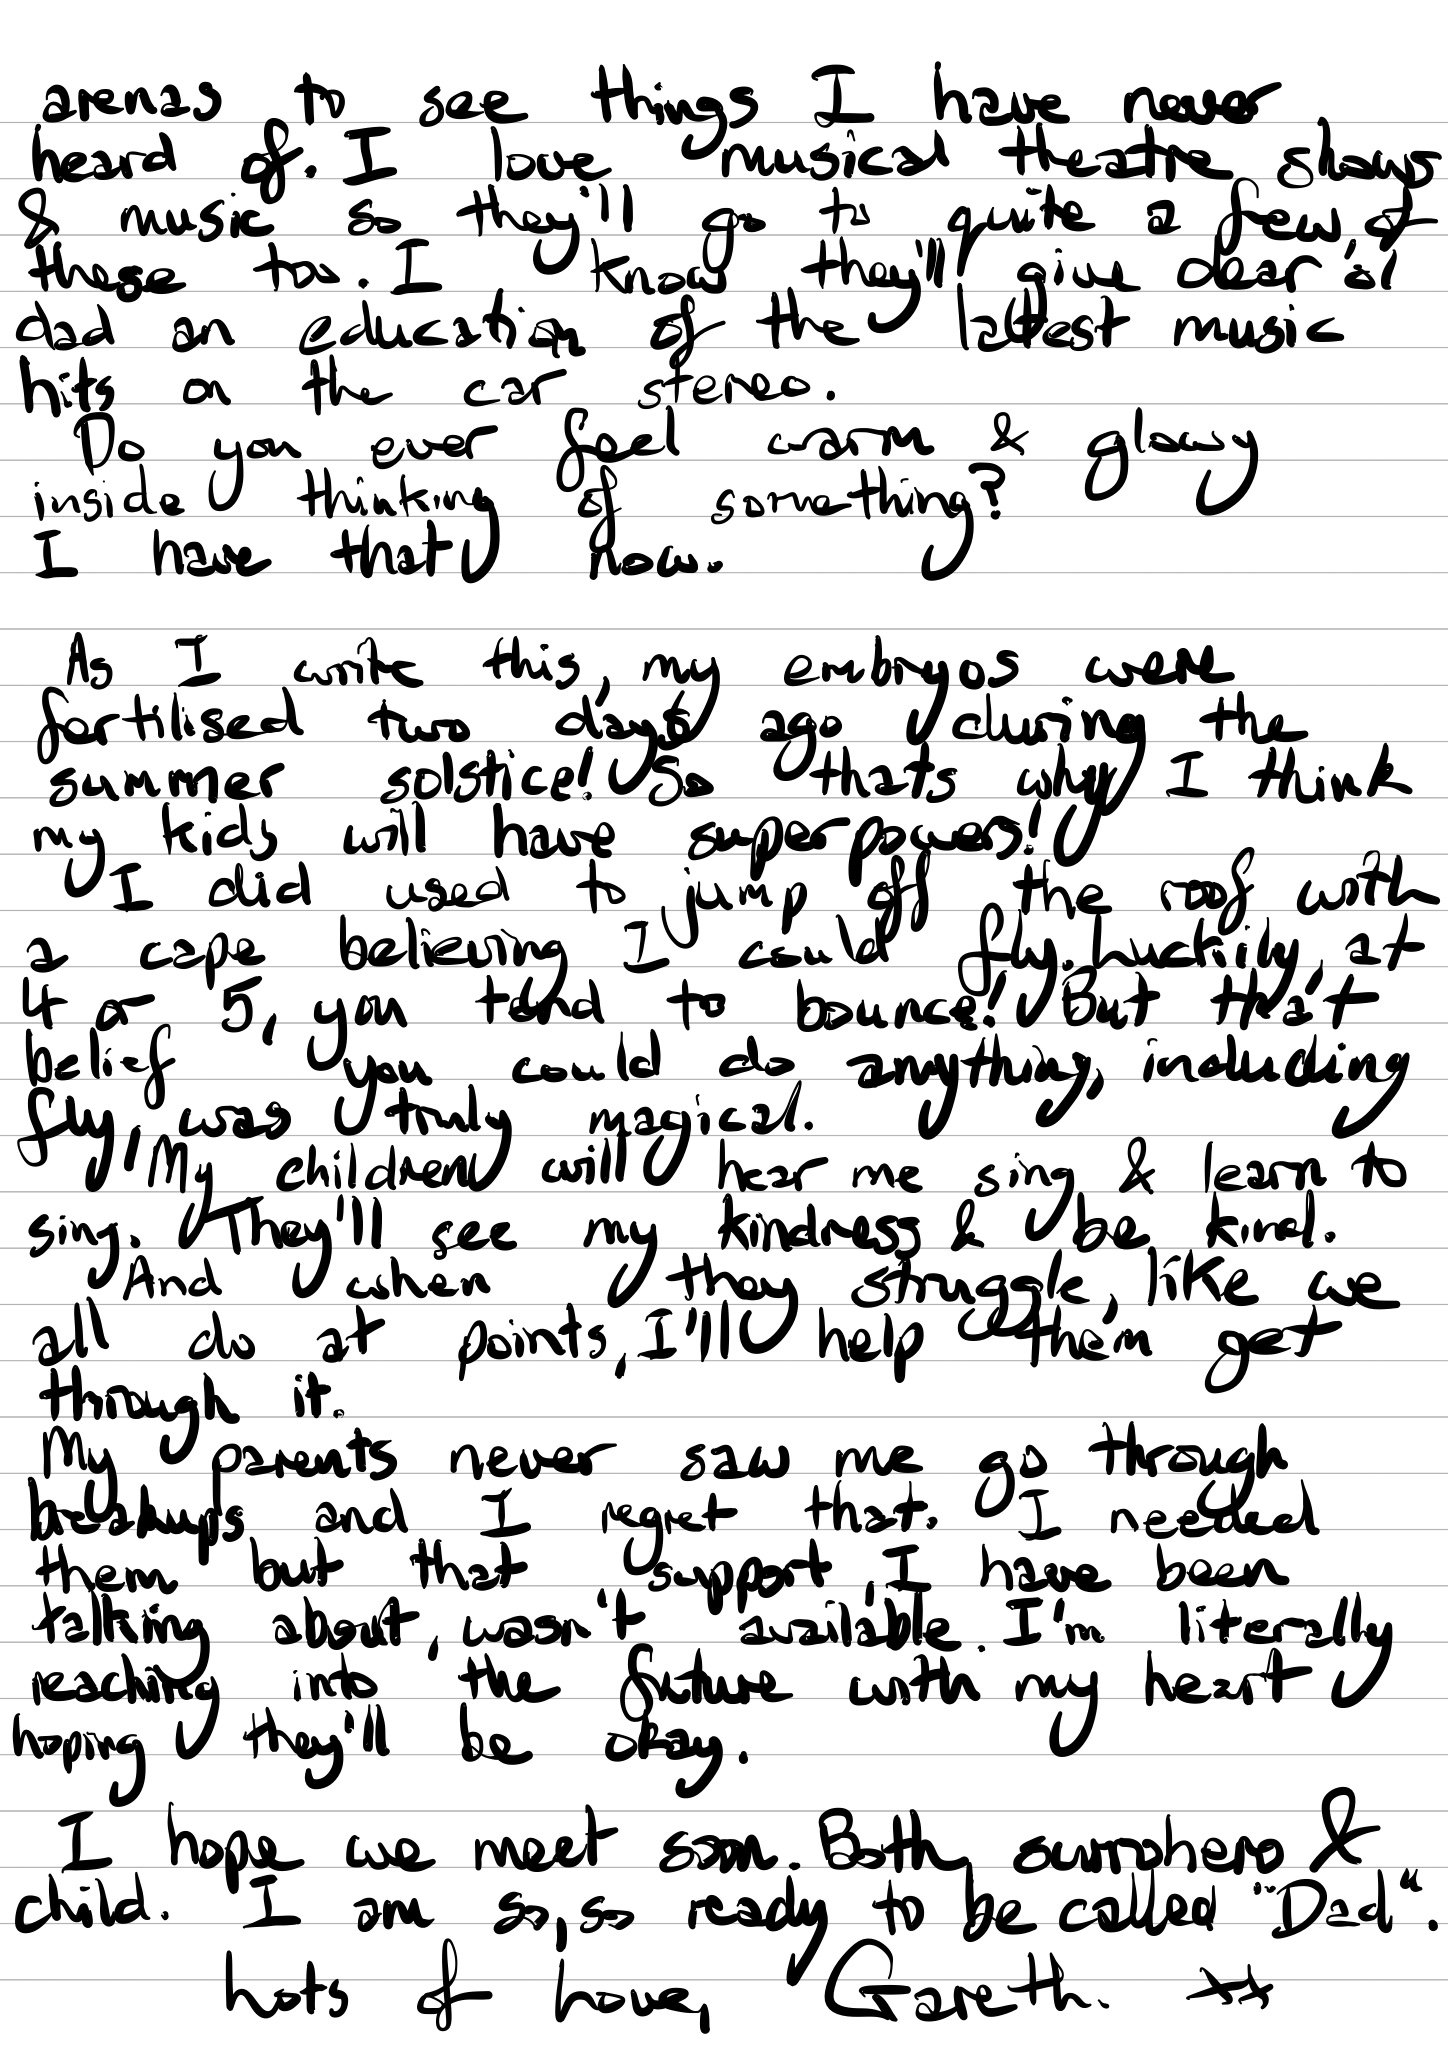 arenas to see things I have never
heard of. I love musical theatre shows
& music so they'll go to quite a few of
these too. I know they'll give dear ol
dad an education of the latest music
hits on the car stereo.
Do you ever feel warm & glowy
inside thinking of something?
I have that now.
As I write this, my embryos were
fertilised two days ago during the
summer solstice! So thats why I think
my kids will have superpowers!
I did used to jump off the roof with
a cape believing I could fly. Luckily, at
4 or 5, you tend to bounce! But that
belief you could do anything, including
fly, was truly magical.
My children will hear me sing & learn to
sing. They'll see my kindness & be kind.
And when they struggle, like we
all do at points, I'll help them get
through it.
My parents never saw me go through
breakups and I regret that. I needed
them but that support, I have been
talking about, wasn't available. I'm literally
reaching into the future with my heart
hoping they'll be okay.
I hope we meet soon. Both surrohero &
child. I am so, so ready to be called "Dad".
Lots of Love, Gareth. xx